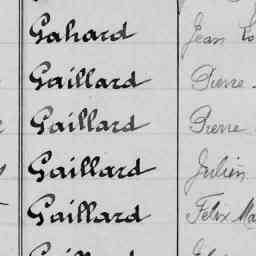 Gahard Jean
Gaillard Pierre
Gaillard Pierre
Gaillard Julien
Gaillard Felix